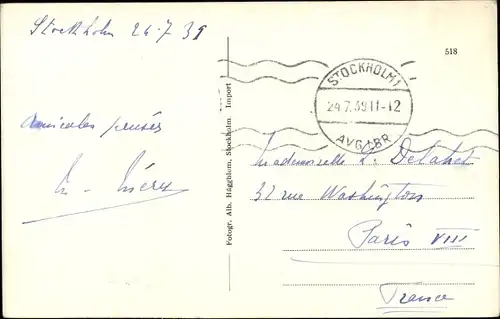 Stockholm 24.7.39
518
STOCKHOLM 1
24.7.39.11-12
AVG.LBR
amicales pensées
Fotogr. Alb. Häggblom, Stockholm. Import
Mademoiselle L. Delahet
32 rue Washington
Paris VIII
France